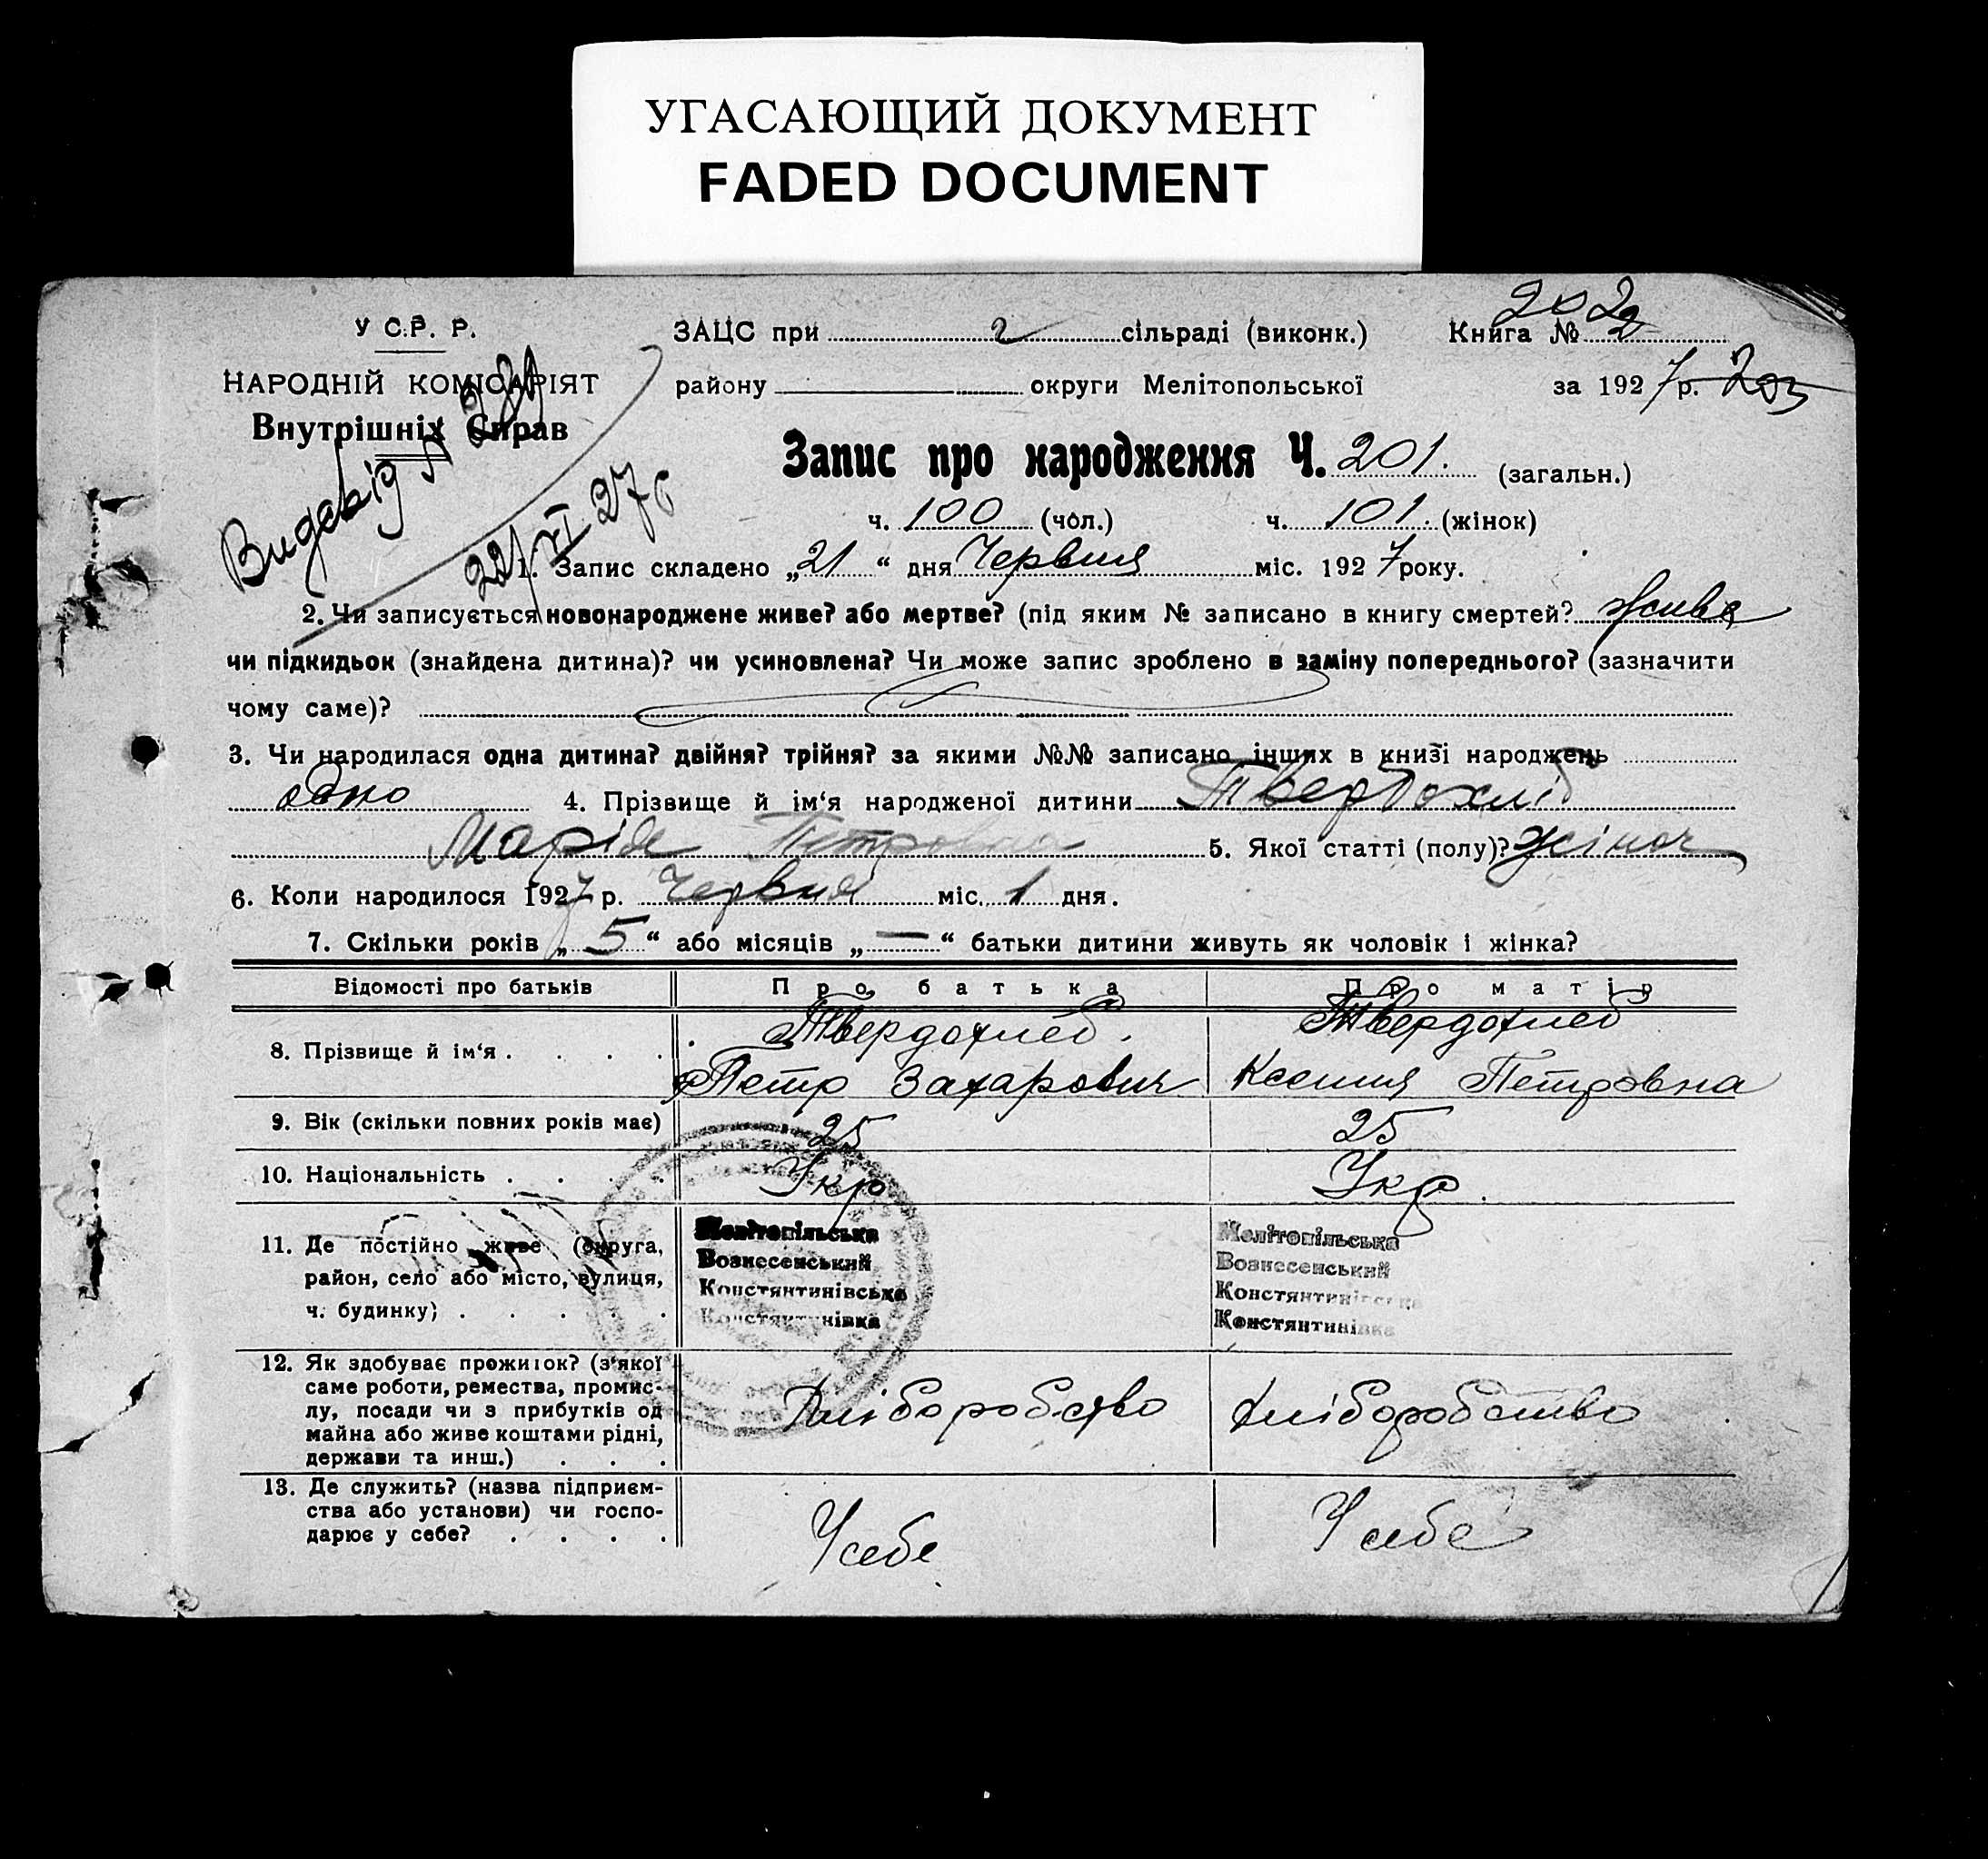 УГАСАЮЩИЙ ДОКУМЕНТ
FADED DOCUMENT
У С.Р. Р.
НАРОДНІЙ КОМІСАРІЯТ
Внутрішніх Справ
22/VI 27
ЗАЦС при 2 сільраді (виконк.) Книга № 2
202
району округи Мелітопольської за 1927 р. 203
Запис про народження Ч. 201. (загальн.)
ч. 100 (чол.) ч. 101. (жінок)
1. Запис складено „21“ дня Червня міс. 1927 року.
2. Чи записується новонароджене живе? або мертве? (під яким № записано в книгу смертей? живе
чи підкидьок (знайдена дитина)? чи усиновлена? Чи може запис зроблено в заміну попереднього? (зазначити
чому саме)?
3. Чи народилася одна дитина? двійня? трійня? за якими №№ записано інших в книзі народжень
одно 4. Прізвище й ім‘я народженої дитини Твердохліб
Марія Петровна 5. Якої статті (полу)? жіноч
6. Коли народилося 1927 р. Червня міс. 1 дня.
7. Скільки років „5“ або місяців „—“ батьки дитини живуть як чоловік і жінка?
Відомості про батьків Про батька Про матір
8. Прізвище й ім‘я . . . . Твердохлеб. Твердохлеб
Петр Захарович Ксения Петровна
9. Вік (скільки повних років має) 25 25
10. Національність . . . . Укр Укр.
11. Де постійно живе (округа, Мелітопільська Мелітопільська
район, село або місто, вулиця, Вознесенський Вознесенський
ч. будинку) . . . . . Константинівська Константинівська
Константинівка Константинівка
12. Як здобуває прожиток? (з‘якої
саме роботи, ремества, промис-
лу, посади чи з прибутків од Хліборобство хліборобство
майна або живе коштами рідні,
держави та инш.) . . .
13. Де служить? (назва підприєм-
ства або установи) чи госпо-
дарює у себе? . . . . У себе У себе